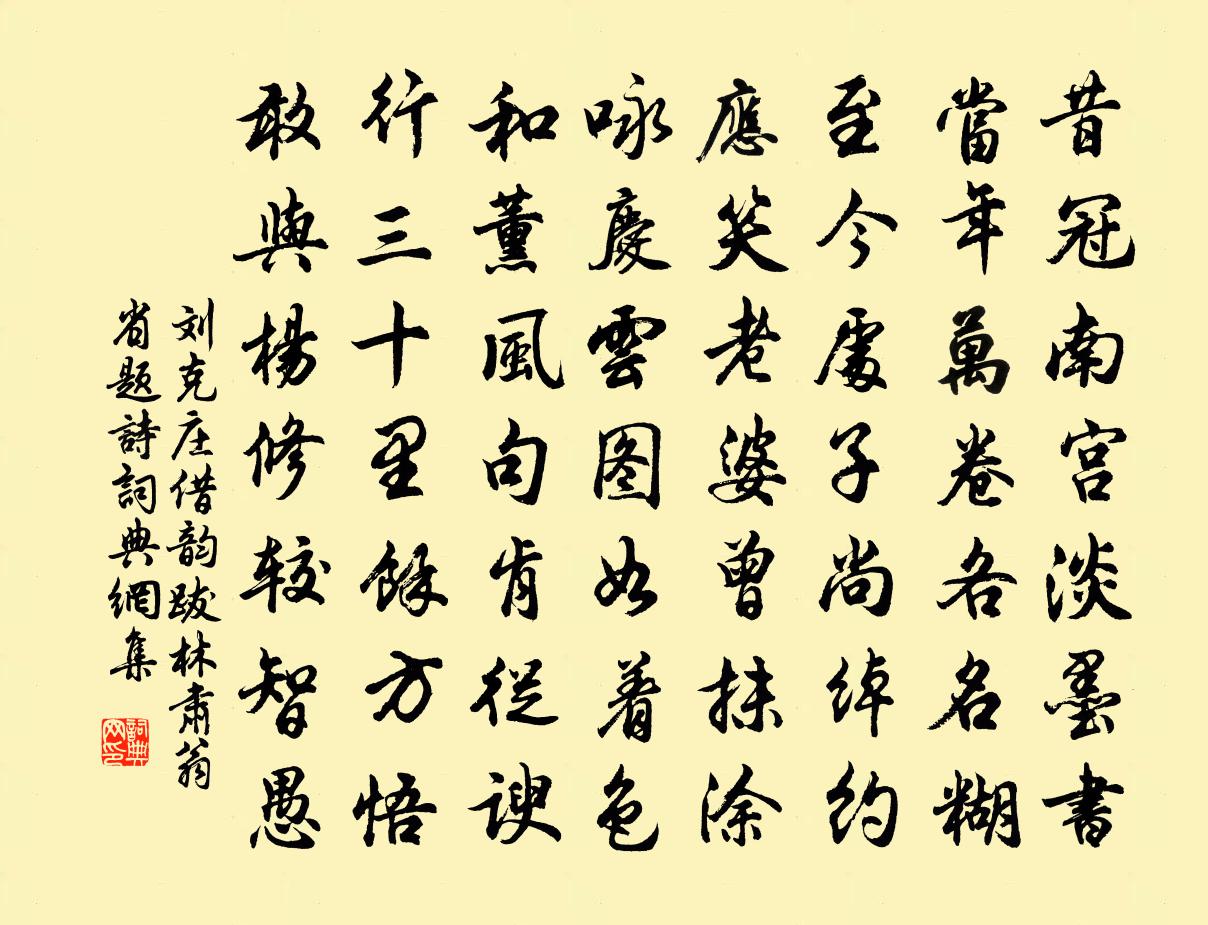 昔冠南宫淡墨書
當年萬卷各名糊
至今處子尚綽約
應笑老婆曾抹涂
咏慶雲图如着色
和薰風句肯從諛
行三十里餘方悟
敢與楊修较智愚
刘克庄借韵跋林肃翁
省题詩詞典網集
詞典网印